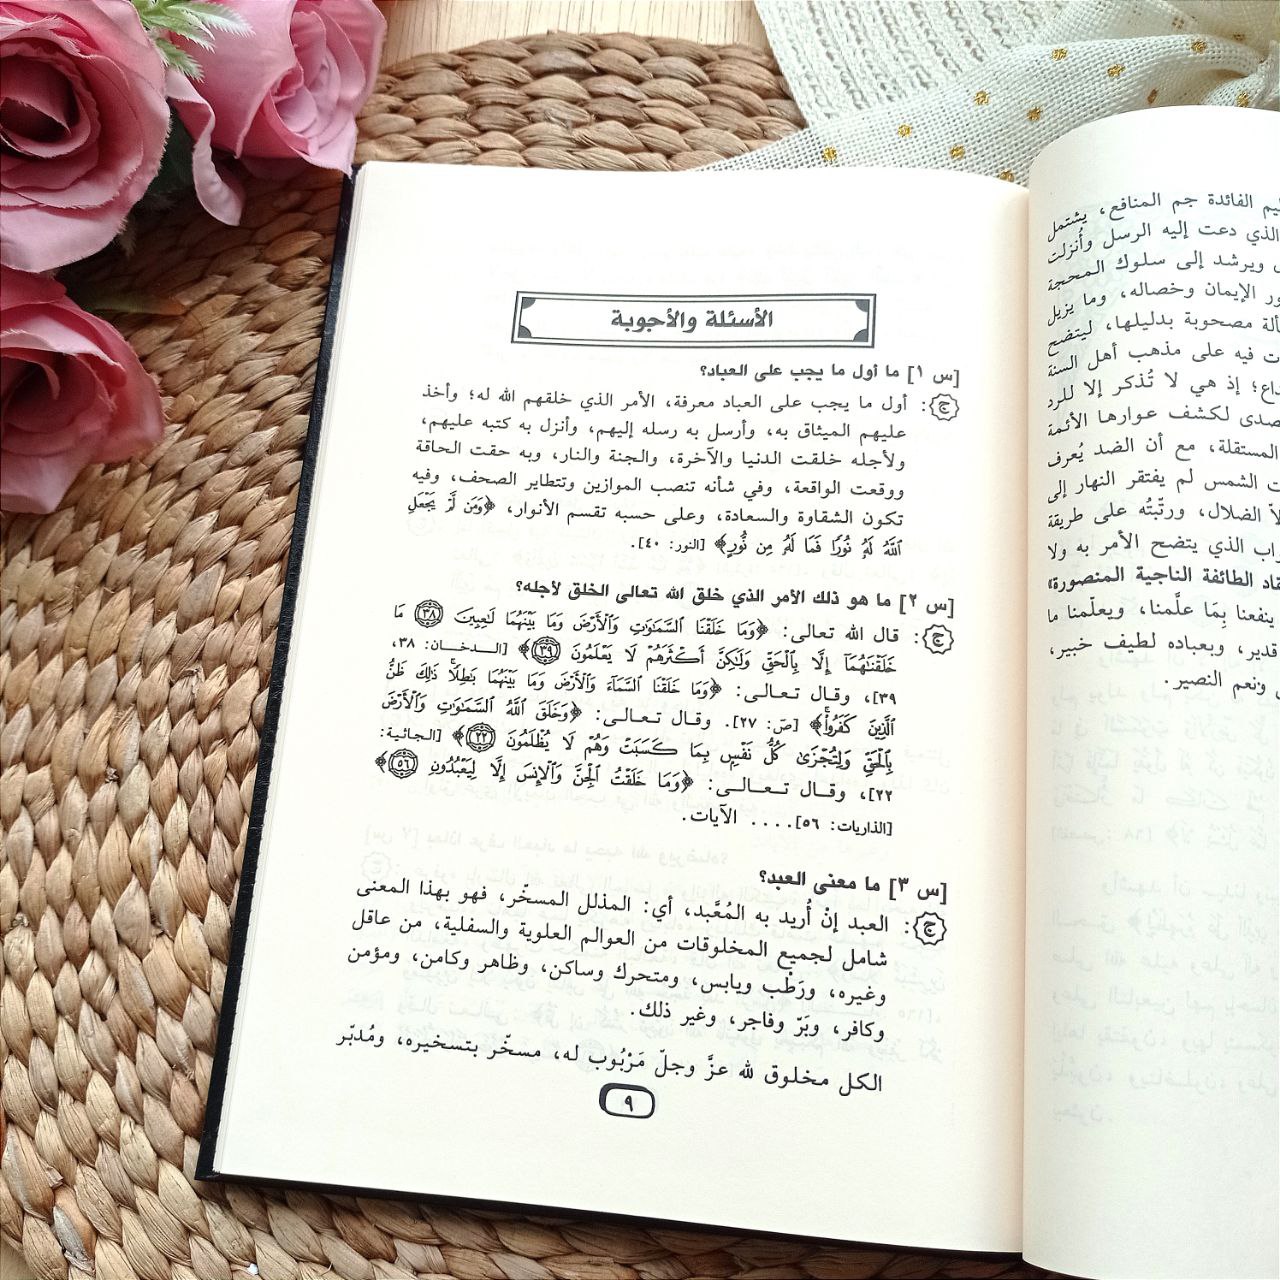 الفائدة جم المنافع، يشتمل
الذي دعت إليه الرسل وأُنزلت
ويرشد إلى سلوك المحجة
الإيمان وخصاله، وما يزيل
مصحوبة بدليلها، ليتضح
فيه على مذهب أهل السنة
إذ هي لا تُذكر إلا للرد
لكشف عوارها الأئمة
المستقلة، مع أن الضد يُعرف
الشمس لم يفتقر النهار إلى
الضلال، ورتّبتُه على طريقة
الذي يتضح الأمر به ولا
الطائفة الناجية المنصورة»
ينفعنا بِمَا علَّمنا، ويعلّمنا ما
قدير، وبعباده لطيف خبير،
ونعم النصير.
الأسئلة والأجوبة
[س ١] ما أول ما يجب على العباد؟
ج: أول ما يجب على العباد معرفة، الأمر الذي خلقهم الله له؛ وأخذ
عليهم الميثاق به، وأرسل به رسله إليهم، وأنزل به كتبه عليهم،
ولأجله خلقت الدنيا والآخرة، والجنة والنار، وبه حقت الحاقة
ووقعت الواقعة، وفي شأنه تنصب الموازين وتتطاير الصحف، وفيه
تكون الشقاوة والسعادة، وعلى حسبه تقسم الأنوار، ﴿وَمَن لَّمْ يَجْعَلِ
ٱللَّهُ لَهُۥ نُورًا فَمَا لَهُۥ مِن نُّورٍ﴾ [النور: ٤٠].
[س ٢] ما هو ذلك الأمر الذي خلق الله تعالى الخلق لأجله؟
ج: قال الله تعالى: ﴿وَمَا خَلَقْنَا ٱلسَّمَٰوَٰتِ وَٱلْأَرْضَ وَمَا بَيْنَهُمَا لَٰعِبِينَ ٣٨ مَا
خَلَقْنَٰهُمَآ إِلَّا بِٱلْحَقِّ وَلَٰكِنَّ أَكْثَرَهُمْ لَا يَعْلَمُونَ ٣٩﴾ [الدخان: ٣٨،
٣٩]، وقال تعالى: ﴿وَمَا خَلَقْنَا ٱلسَّمَآءَ وَٱلْأَرْضَ وَمَا بَيْنَهُمَا بَٰطِلًا ۚ ذَٰلِكَ ظَنُّ
ٱلَّذِينَ كَفَرُوا۟ ۚ﴾ [صَ: ٢٧]. وقال تعالى: ﴿وَخَلَقَ ٱللَّهُ ٱلسَّمَٰوَٰتِ وَٱلْأَرْضَ
بِٱلْحَقِّ وَلِتُجْزَىٰ كُلُّ نَفْسٍۭ بِمَا كَسَبَتْ وَهُمْ لَا يُظْلَمُونَ ٢٢﴾ [الجاثية:
٢٢]، وقال تعالى: ﴿وَمَا خَلَقْتُ ٱلْجِنَّ وَٱلْإِنسَ إِلَّا لِيَعْبُدُونِ ٥٦﴾
[الذاريات: ٥٦].... الآيات.
[س ٣] ما معنى العبد؟
ج: العبد إنْ أُريد به المُعَّبد، أي: المذلل المسخّر، فهو بهذا المعنى
شامل لجميع المخلوقات من العوالم العلوية والسفلية، من عاقل
وغيره، ورَطْب ويابس، ومتحرك وساكن، وظاهر وكامن، ومؤمن
وكافر، وبَرّ وفاجر، وغير ذلك.
الكل مخلوق لله عزَّ وجلّ مَرْبُوب له، مسخّر بتسخيره، ومُدبّر
٩